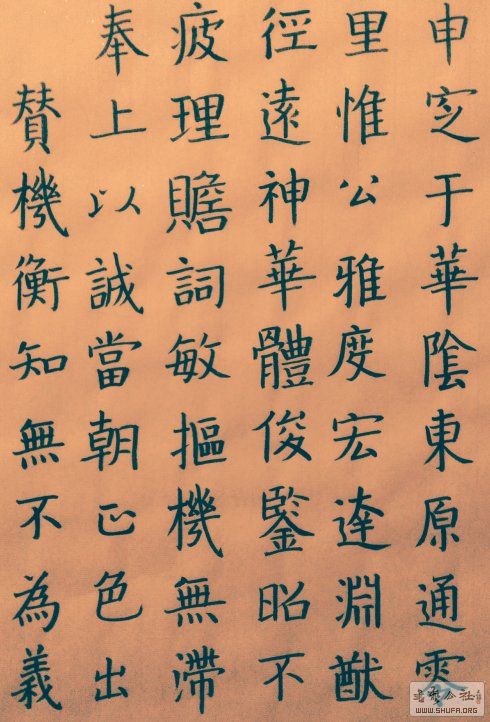 申窆于華陰東原通靈
里惟公雅度宏達淵猷
徑遠神華體俊鑒昭不
疲理贍詞敏摳機無滯
奉上以誠當朝正色出
贊機衡知無不為義
WWW.SHUFA.ORG